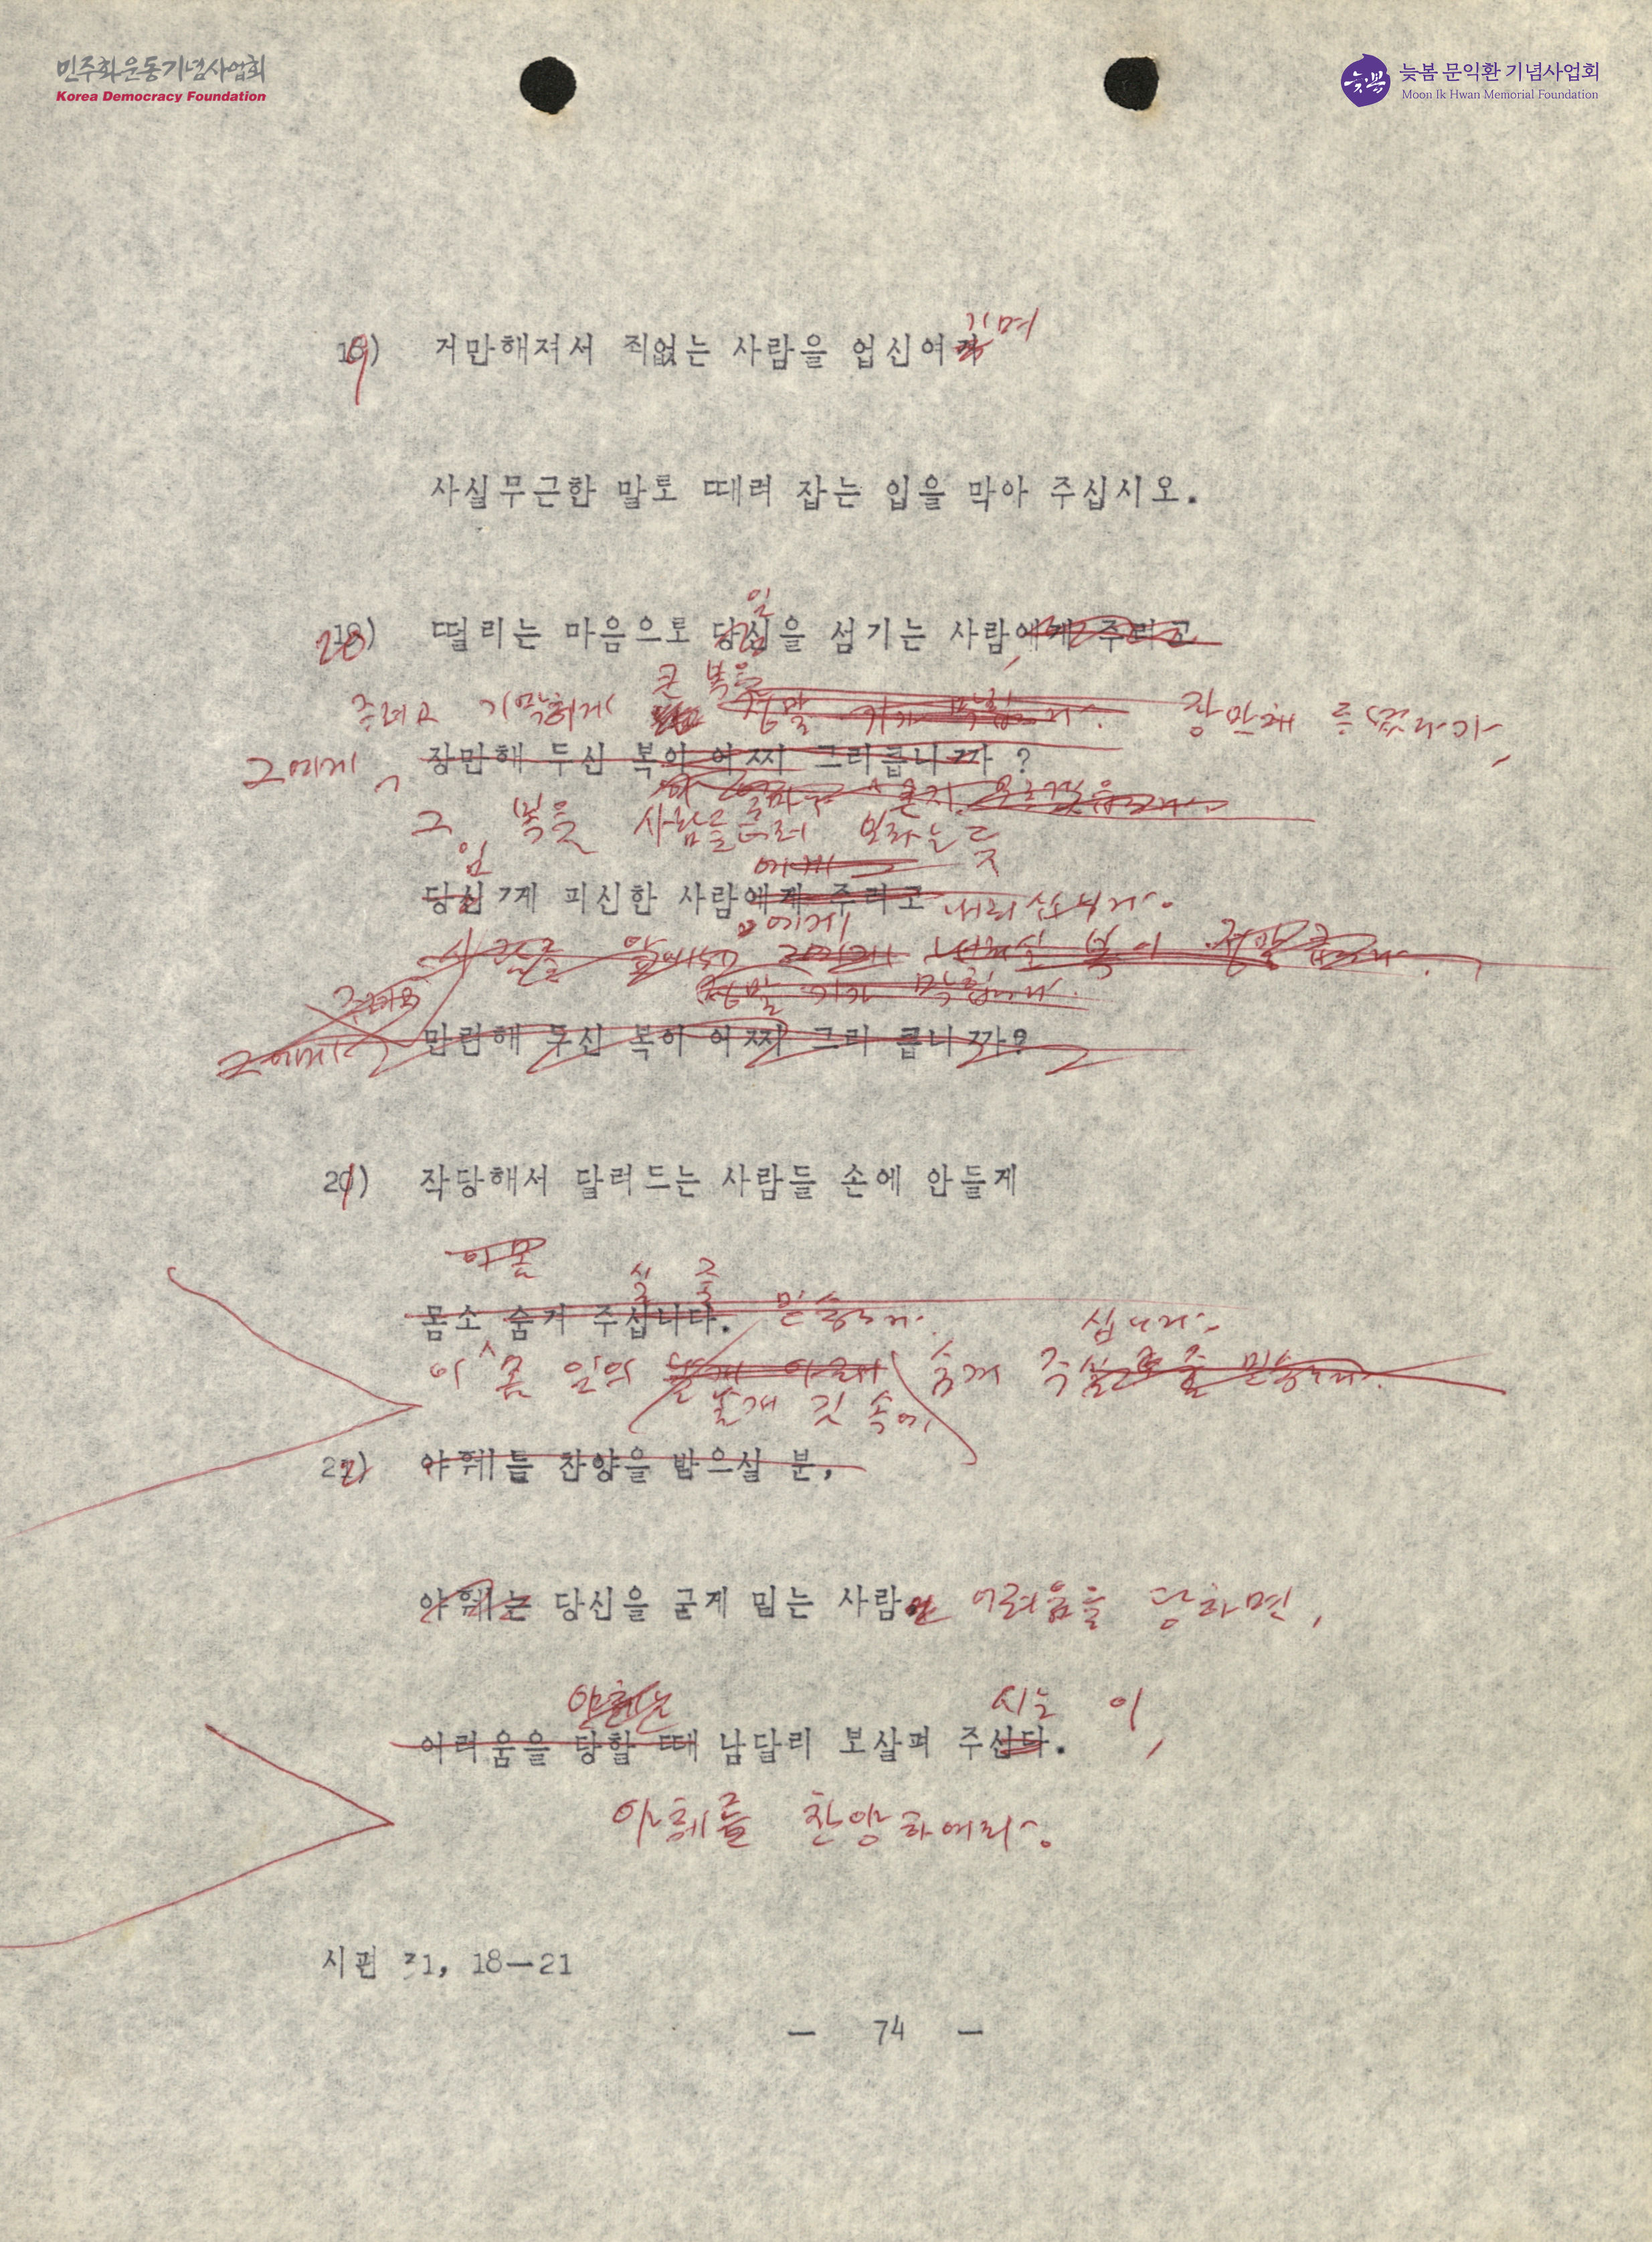 민주화운동기념사업회
Korea Democracy Foundation
늦봄
늦봄 문익환 기념사업회
Moon Ik Hwan Memorial Foundation
기며
19) 거만해져서 죄없는 사람을 업신여
사실무근한 말로 때려 잡는 입을 막아 주십시오.
일
20) 떨리는 마음으로 당신을 섬기는 사람에게 주려고
큰 복을
주려고 기막히게 정말 기가 막힙니다. 장만해 두셨다가,
그에게 장만해 두신 복이 어찌 그리 큽니까 ?
그 복을 사람들 보라는 듯
임
에게
당신께 피신한 사람에게 주려고 내리십니다.
에게
정말 기가 막힙니다.
주려고
그에게 마련해 두신 복이 어찌 그리 큽니까?
21) 작당해서 달려드는 사람들 손에 안들게
이 몸
실 줄
몸소 숨겨 주십니다. 믿습니다.
십니다.
이 몸 임의 숨겨 주실 줄 믿습니다.
날개 깃 속에
22) 야훼를 찬양을 받으실 분,
야훼는 당신을 굳게 믿는 사람 어려움을 당하면,
시는 이,
어려움을 당할 때 남달리 보살펴 주신다.
야훼를 찬양하여라.
시편 31, 18—21
— 74 —